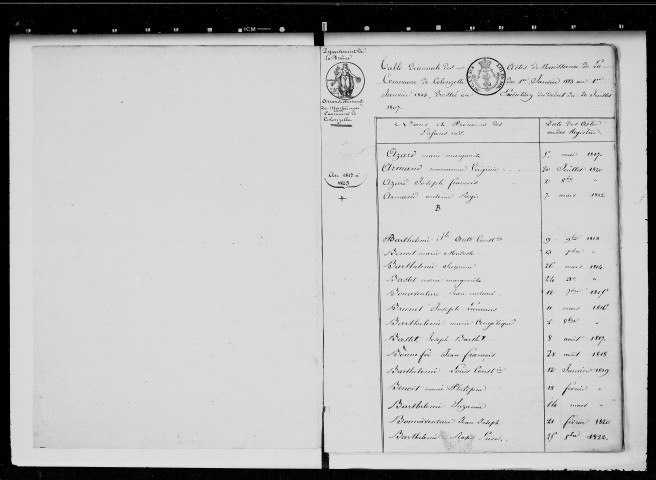 Département de
la Drôme
Arrondissement
de Montélimar
Commune de
Colonzelle
An 1813 à
1823
Table Décennale des Actes de Naissance de la
Commune de Colonzelle du 1er Janvier 1813 au 1er
Janvier 1823, dressée en Exécution du décret du 20 Juillet
1807.
Noms et Prénoms des
Enfans nés.
Date des Actes
Registres
Azard marie marguerite mai 1817.
Armand marianne Virginie 20 Juillet 1820
Azard Joseph françois 2 8bre "
Armand 7 mars 1822
B
Barthelemi 9 9bre 1813
Benoit marie 13 "
Barthelemi Suzanne 26 mars 1814.
Bastet marie marguerite 24 "
Bonnaventure Jean 1815
Brunet Joseph 11 mars 1816
Barthelemi marie Angélique 2 8bre "
Bastet Joseph Barthel. 8 août 1817.
Bonnefoi Jean françois 28 août 1818.
Barthelemi Louis 12 Janvier 1819
Benoit marie 18 février "
Barthelemi Suzanne 14 mars "
Bonnaventure Jean Joseph 21 février 1820
Barthelemi 25 8bre 1822.